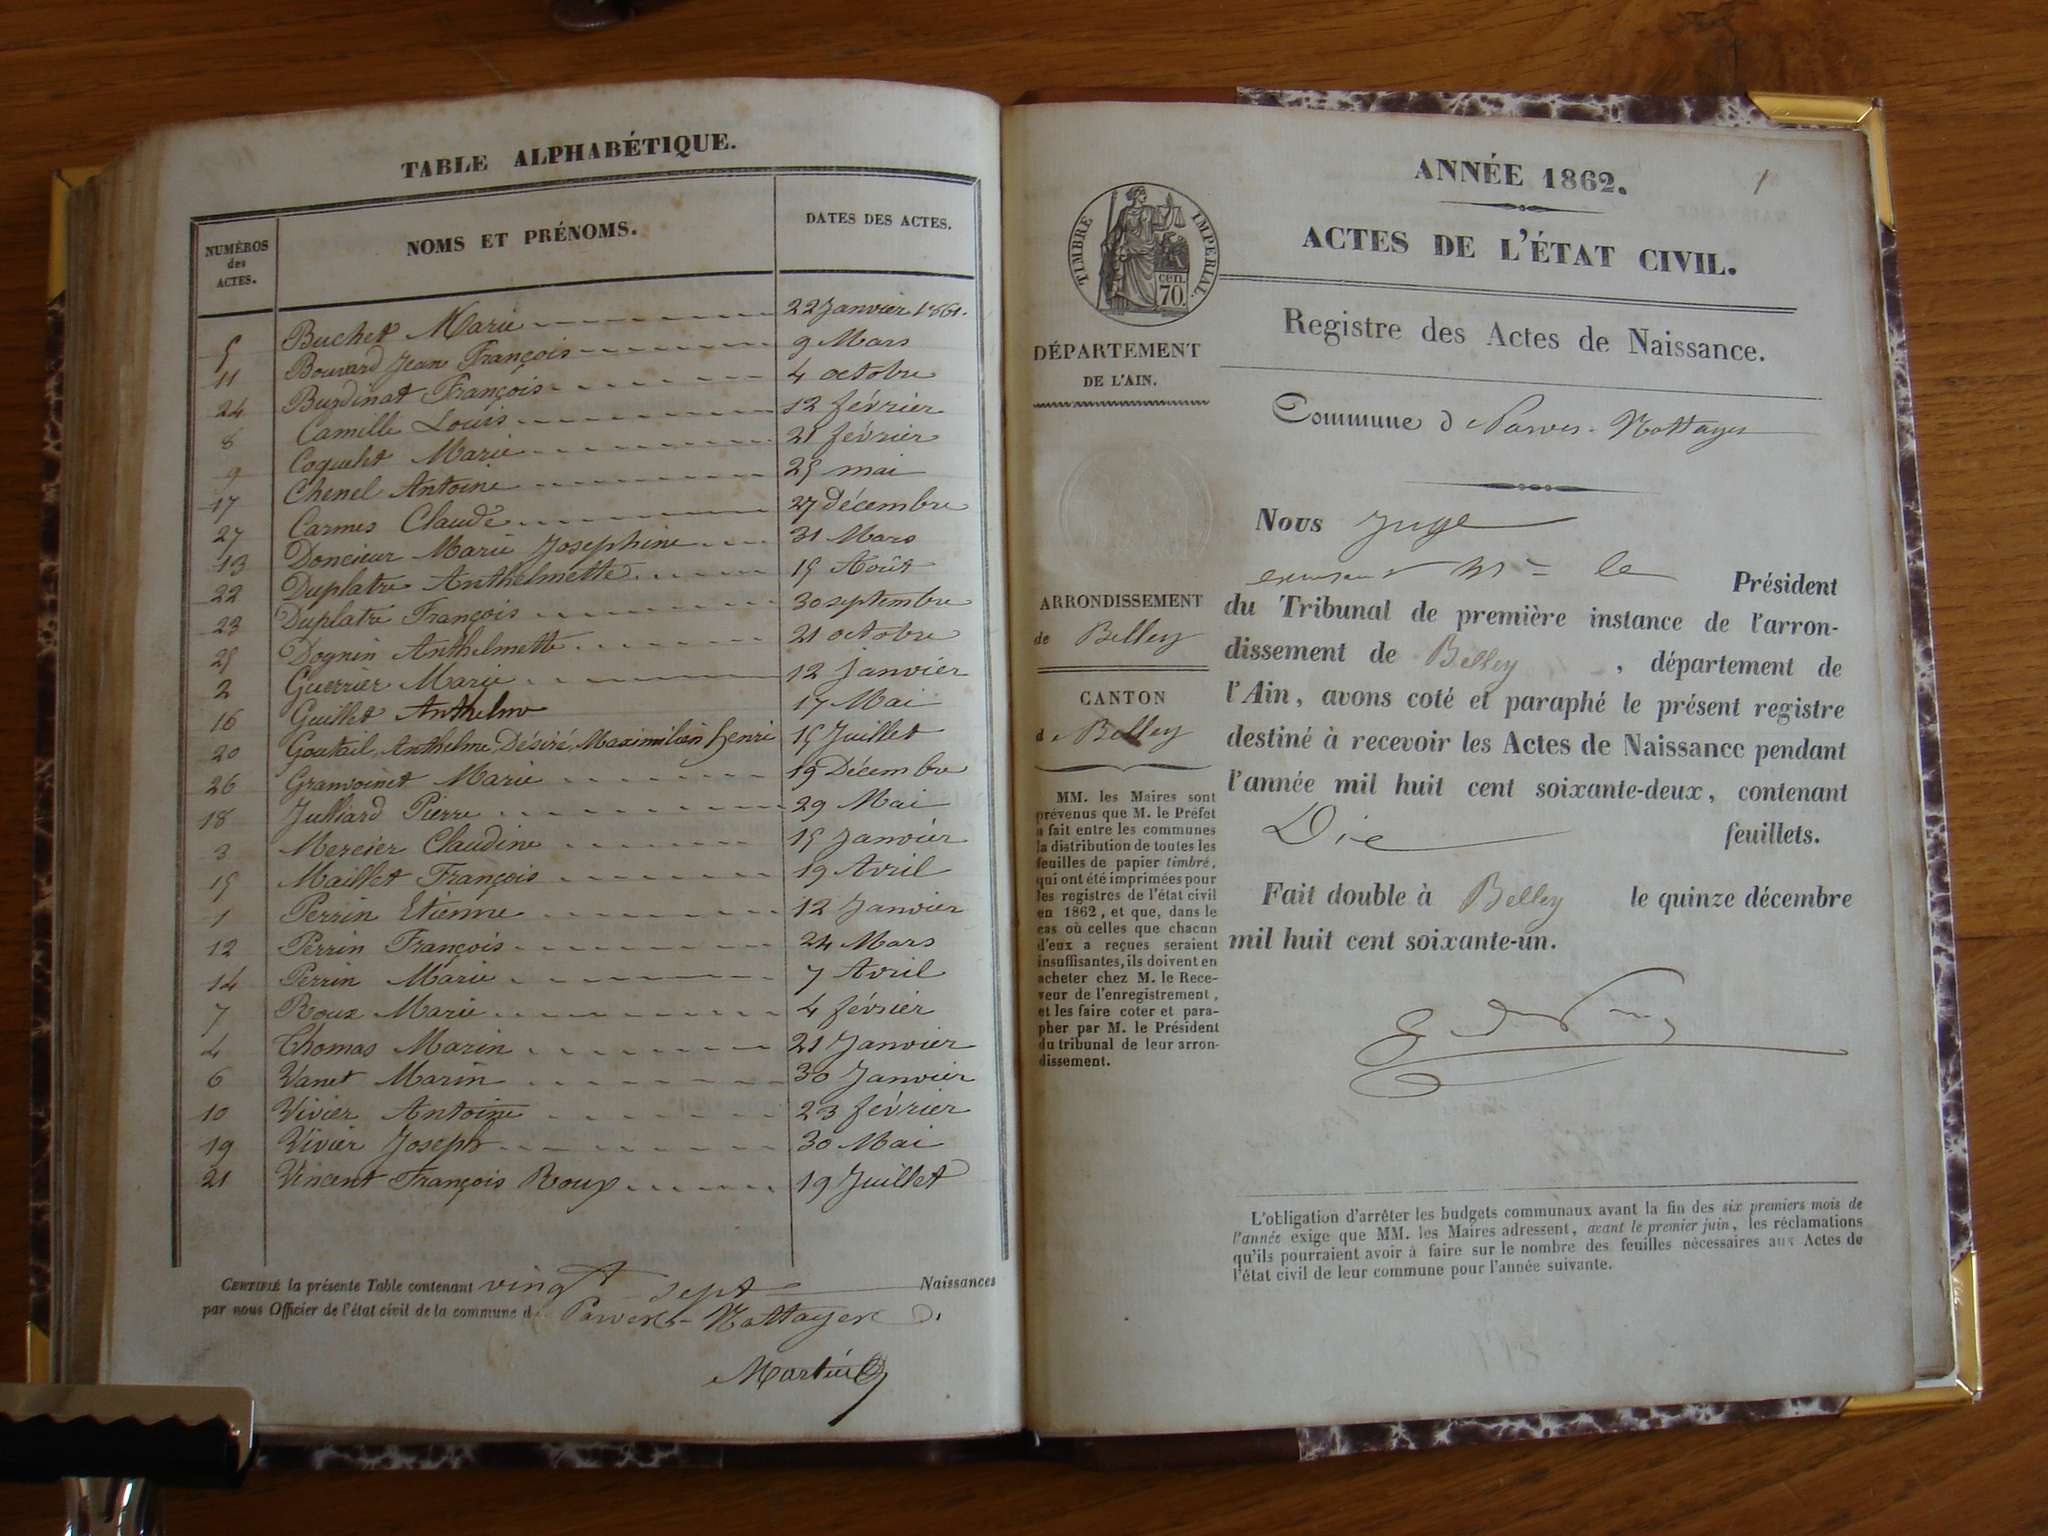 TABLE ALPHABÉTIQUE.
NUMÉROS des ACTES. NOMS ET PRÉNOMS. DATES DES ACTES.
5 Buchet Marie 22 Janvier 1861.
11 Bouvard Jean François 9 Mars
24 Burdinat François 4 octobre
8 Camille Louis 12 février
9 Coquelet Marie 21 février
17 Chenel Antoine 25 mai
27 Carmes Claude 27 Décembre
13 Doncieur Marie Josephine 31 Mars
22 Duplatre Anthelmette 15 Août
23 Duplatre François 30 septembre
25 Dognin Anthelmette 21 octobre
2 Guerrier Marie 12 Janvier
16 Guillet Anthelme 17 Mai
20 Goutail, Anthelme, Désiré, Maximilien henri 15 Juillet
26 Granvoinet Marie 19 Décembre
18 Julliard Pierre 29 Mai
3 Mercier Claudine 15 Janvier
15 Maillet François 19 Avril
1 Perrin Etienne 12 Janvier
12 Perrin François 24 Mars
14 Perrin Marie 7 Avril
7 Roux Marie 4 février
4 Thomas Marin 21 Janvier
6 Vanet Marin 30 Janvier
10 Vivier Antoine 23 février
19 Vivier Joseph 30 Mai
21 Vincent François Roux 19 Juillet
CERTIFIÉ la présente Table contenant vingt sept Naissances
par nous Officier de l'état civil de la commune d Parves-Nattages
Martin
1
ANNÉE 1862.
ACTES DE L'ÉTAT CIVIL.
TIMBRE IMPERIAL.
cen.
70.
DÉPARTEMENT
DE L'AIN.
ARRONDISSEMENT
de Belley
CANTON
de Belley
MM. les Maires sont
prévenus que M. le Préfet
a fait entre les communes
la distribution de toutes les
feuilles de papier timbré,
qui ont été imprimées pour
les registres de l'état civil
en 1862, et que, dans le
cas où celles que chacun
d'eux a reçues seraient
insuffisantes, ils doivent en
acheter chez M. le Rece-
veur de l'enregistrement,
et les faire coter et para-
pher par M. le Président
du tribunal de leur arron-
dissement.
Registre des Actes de Naissance.
Commune d Parves-Nattages
Nous Juge
le Président
du Tribunal de première instance de l'arron-
dissement de Belley, département de
l'Ain, avons coté et paraphé le présent registre
destiné à recevoir les Actes de Naissance pendant
l'année mil huit cent soixante-deux, contenant
Dix feuillets.
Fait double à Belley le quinze décembre
mil huit cent soixante-un.
L'obligation d'arrêter les budgets communaux avant la fin des six premiers mois de
l'année exige que MM. les Maires adressent, avant le premier juin, les réclamations
qu'ils pourraient avoir à faire sur le nombre des feuilles nécessaires aux Actes de
l'état civil de leur commune pour l'année suivante.